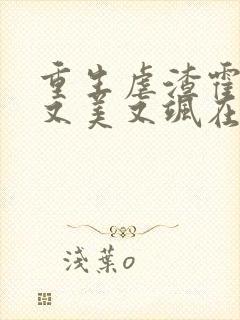 重生虐渣霍
又美又飒在
浅葉o